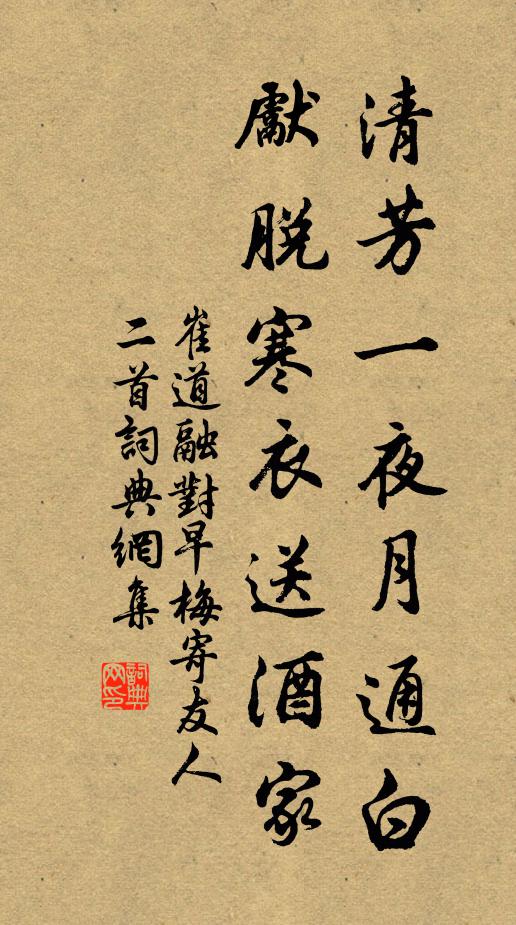 清芳一夜月通白
獻脫寒衣送酒家
崔道融對早梅寄友人
二首詞典網集
詞典
网印